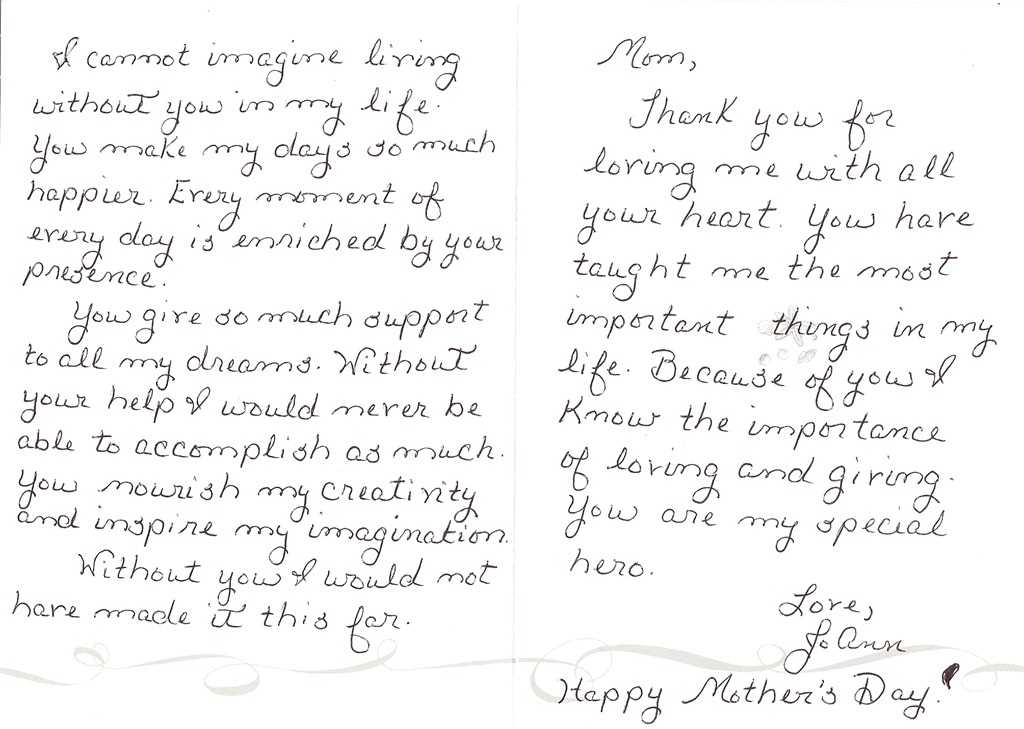 I cannot imagine living
without you in my life.
You make my days so much
happier. Every moment of
every day is enriched by your
presence.
You give so much support
to all my dreams. Without
your help I would never be
able to accomplish as much.
You nourish my creativity
and inspire my imagination.
Without you I would not
have made it this far.
Mom,
Thank you for
loving me with all
your heart. You have
taught me the most
important things in my
life. Because of you I
know the importance
of loving and giving.
You are my special
hero.
Love,
JoAnn
Happy Mother's Day!